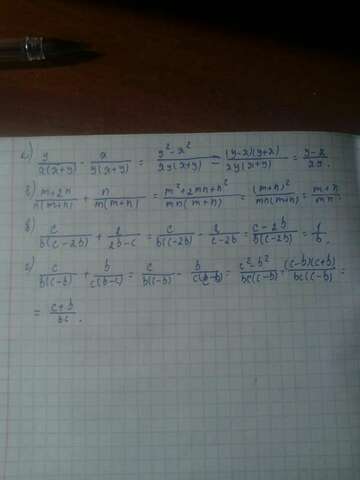 а) y/(x(x+y)) - x/(y(x+y)) = (y²-x²)/(xy(x+y)) = ((y-x)(y+x))/(xy(x+y)) = (y-x)/(xy).
(m+2n)/(n(m+n)) + n/(m(m+n)) = (m²+2mn+n²)/(mn(m+n)) = (m+n)²/(mn(m+n)) = (m+n)/(mn)
c/(b(c-2b)) + 2/(2b-c) = c/(b(c-2b)) - 2/(c-2b) = (c-2b)/(b(c-2b)) = 1/b.
c/(b(c-b)) + b/(c(b-c)) = c/(b(c-b)) - b/(c(c-b)) = (c²-b²)/(bc(c-b)) = ((c-b)(c+b))/(bc(c-b)) =
= (c+b)/(bc).